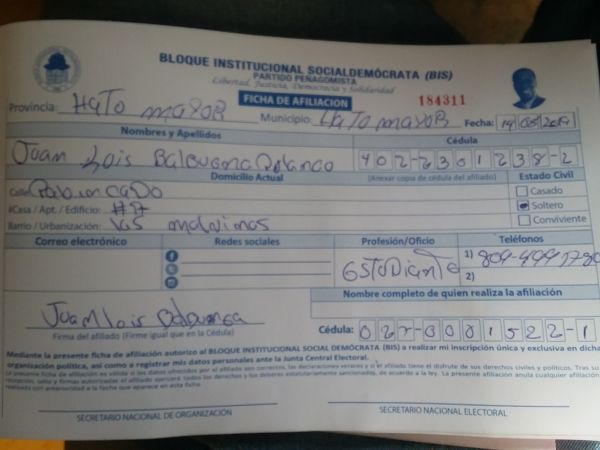 BLOQUE INSTITUCIONAL SOCIALDEMÓCRATA (BIS)
PARTIDO PEÑAGOMISTA
Libertad, Justicia, Democracia y Solidaridad
FICHA DE AFILIACION
184311
Provincia: Hato mayor Municipio: Hato mayor Fecha: 14/05/2019
Nombres y Apellidos Cédula
Juan Lois Balbuena Polanco 402-2301238-2
Domicilio Actual (Anexar copia de cédula del afiliado) Estado Civil
Calle: Casado
#Casa / Apt. / Edificio: #7 Soltero
Barrio / Urbanización: Las malvinas Conviviente
Correo electrónico Redes sociales Profesión/Oficio Teléfonos
EStuDiante 1) 809-499
2)
Nombre completo de quien realiza la afiliación
Juan lois
Firma del afiliado (Firme igual que en la Cédula) Cédula: 027-0001522-1
Mediante la presente ficha de afiliación autorizo al BLOQUE INSTITUCIONAL SOCIAL DEMÓCRATA (BIS) a realizar mi inscripción única y exclusiva en dicha
organización política, así como a registrar mis datos personales ante la Junta Central Electoral.
La presente ficha de afiliación es válida si los datos ofrecidos por el afiliado son correctos, las declaraciones veraces y si el afiliado tiene el disfrute de sus derechos civiles y políticos. Tras su
recepción, sello y firmas autorizadas el afiliado ejercerá todos los derechos y los deberes estatutariamente sancionados, de acuerdo a la ley. La presente afiliación anula cualquier afiliación
realizada con anterioridad a la fecha que aparece en esta ficha.
SECRETARIO NACIONAL DE ORGANIZACIÓN SECRETARIO NACIONAL ELECTORAL